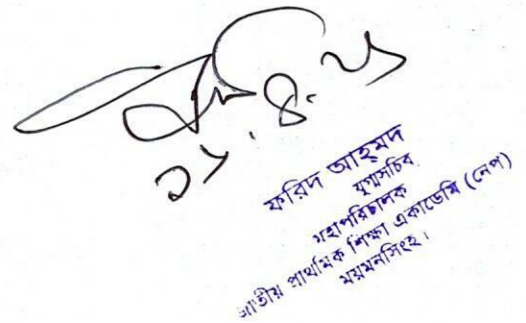 ২১.৪.২১
ফরিদ আহ্‌মদ
যুগ্মসচিব
মহাপরিচালক
জাতীয় প্রাথমিক শিক্ষা একাডেমি (নেপ)
ময়মনসিংহ।